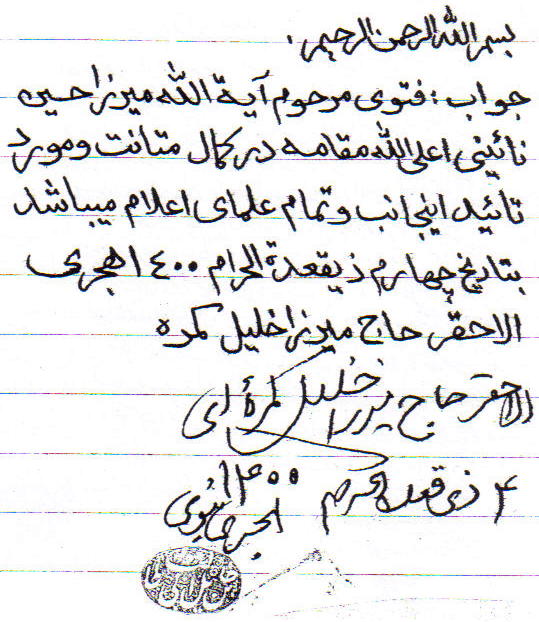 بسم الله الرحمن الرحیم.
جواب: فتوی مرحوم آیة الله میرزا حسین
نائینی اعلی الله مقامه در کمال متانت و مورد
تائید اینجانب و تمام علمای اعلام میباشد
بتاریخ چهارم ذیقعدة الحرام ۱۴۰۰ هجری
الاحقر حاج میرزا خلیل کمره
الاحقر حاج میرزا خلیل کمرهٔ ای
۴ ذی قعده الحرام ۱۴۰۰
الهجری النبوی